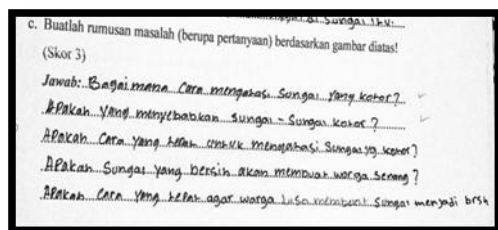 Sungai
c. Buatlah rumusan masalah (berupa pertanyaan) berdasarkan gambar diatas!
(Skor 3)
Jawab: Bagaimana Cara mengatasi Sungai Yang kotor?
Apakah Yang menyebabkan sungai - Sungai kotor?
Apakah Cara yang tepat untuk mengatasi Sungai yg kotor?
Apakah Sungai yang bersih akan membuat warga senang?
Apakah Cara Yang tepat agar warga bisa membuat Sungai menjadi brsh